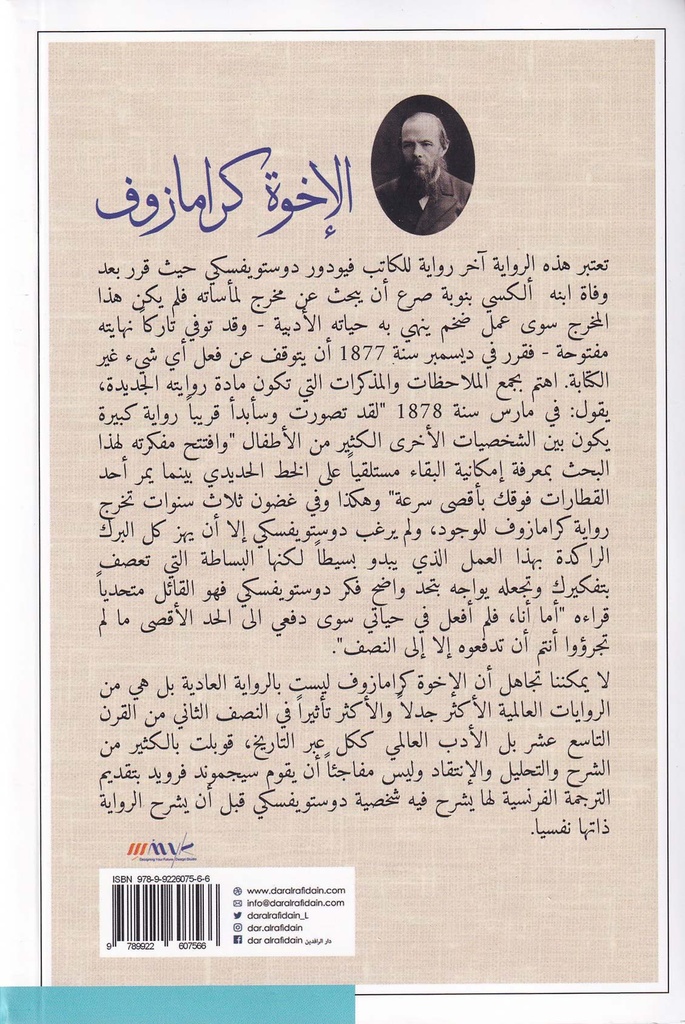 الإخوة كرامازوف
تعتبر هذه الرواية آخر رواية للكاتب فيودور دوستويفسكي حيث قرر بعد
وفاة ابنه ألكسي بنوبة صرع أن يبحث عن مخرج لمأساته فلم يكن هذا
المخرج سوى عمل ضخم ينهي به حياته الأدبية - وقد توفي تاركاً نهايته
مفتوحة - فقرر في ديسمبر سنة 1877 أن يتوقف عن فعل أي شيء غير
الكتابة. اهتم بجمع الملاحظات والمذكرات التي تكون مادة روايته الجديدة،
يقول: في مارس سنة 1878 "لقد تصورت وسأبدأ قريباً رواية كبيرة
يكون بين الشخصيات الأخرى الكثير من الأطفال "وافتتح مفكرته لهذا
البحث بمعرفة إمكانية البقاء مستلقياً على الخط الحديدي بينما يمر أحد
القطارات فوقك بأقصى سرعة" وهكذا وفي غضون ثلاث سنوات تخرج
رواية كرامازوف للوجود، ولم يرغب دوستويفسكي إلا أن يهز كل البرك
الراكدة بهذا العمل الذي يبدو بسيطاً لكنها البساطة التي تعصف
بتفكيرك وتجعله يواجه بتحد واضح فكر دوستويفسكي فهو القائل متحدياً
قراءه "أما أنا، فلم أفعل في حياتي سوى دفعي الى الحد الأقصى ما لم
تجرؤوا أنتم أن تدفعوه إلا إلى النصف".
لا يمكننا تجاهل أن الإخوة كرامازوف ليست بالرواية العادية بل هي من
الروايات العالمية الأكثر جدلاً والأكثر تأثيراً في النصف الثاني من القرن
التاسع عشر بل الأدب العالمي ككل عبر التاريخ، قوبلت بالكثير من
الشرح والتحليل والإنتقاد وليس مفاجئاً أن يقوم سيجموند فرويد بتقديم
الترجمة الفرنسية لها يشرح فيه شخصية دوستويفسكي قبل أن يشرح الرواية
ذاتها نفسيا.
ISBN 978-9-9226075-6-6
9 789922 607566
www.daralrafidain.com
info@daralrafidain.com
daralrafidain_L
dar.alrafidain
dar alrafidain دار الرافدين